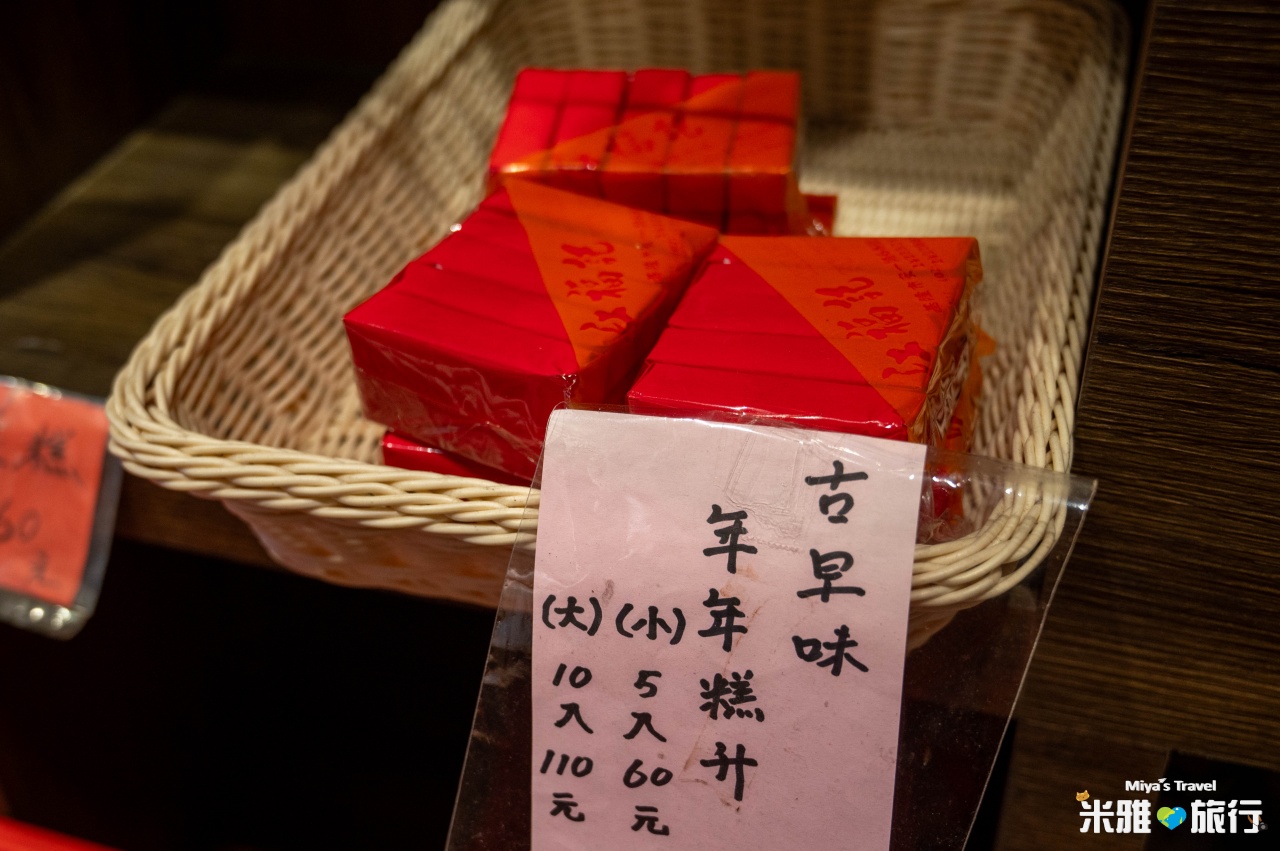 古早味
年年糕升
(小)5入60元
(大)10入110元
江福記
江福記
糕
60
元
Miya's Travel
米雅旅行